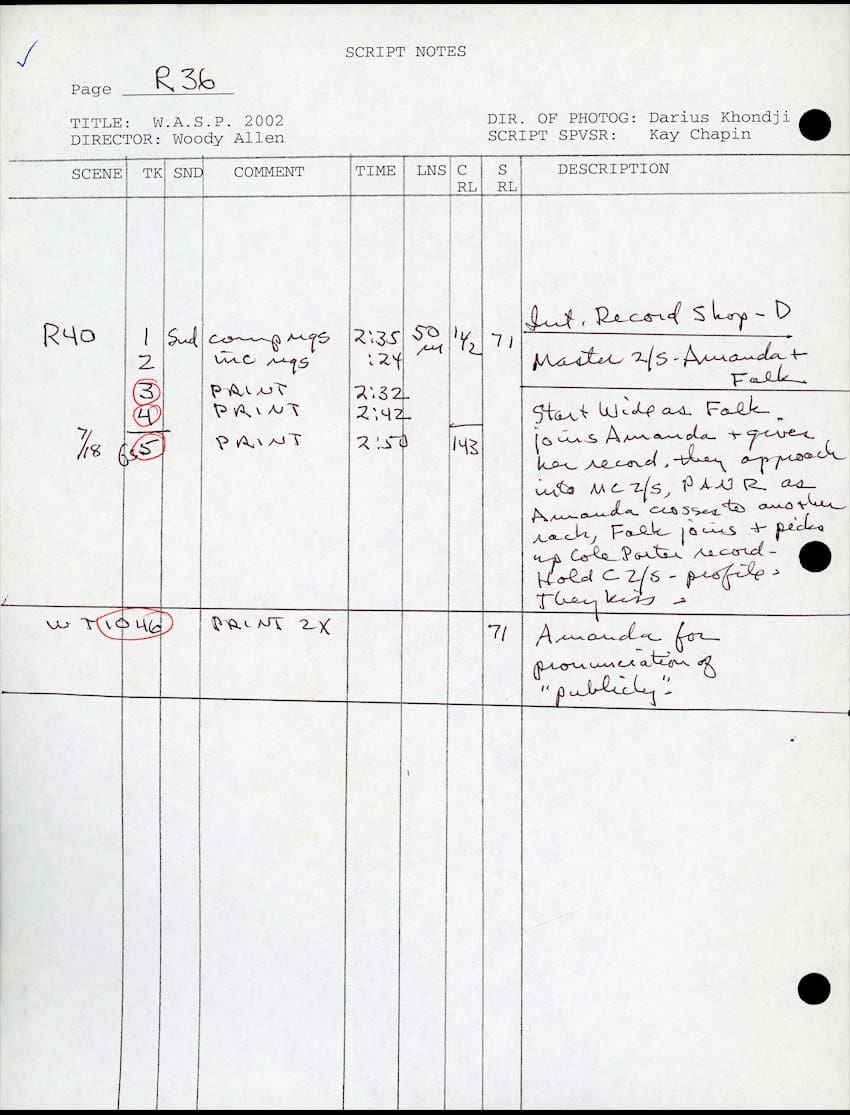 SCRIPT NOTES
Page R 36
TITLE: W.A.S.P. 2002
DIR. OF PHOTOG: Darius Khondji
DIRECTOR: Woody Allen
SCRIPT SPVSR: Kay Chapin
SCENE TK SND COMMENT TIME LNS C RL S RL DESCRIPTION
Int. Record Shop - D
R40 1 Snd comp ngs 2:35 50 m 142 71
Master 2/S - Amanda +
2 inc ngs :24
Falk
3 PRINT 2:32
4 PRINT 2:42
Start Wide as Falk
7/18 5 PRINT 2:50 143
joins Amanda + gives
her record, they approach
into MC 2/S, PAN R as
Amanda crosses to another
rack, Falk joins + picks
up Cole Porter record -
Hold C 2/S - profile.
They kiss -
WT 1046 PRINT 2X 71 Amanda for
pronunciation of
"publicly" -